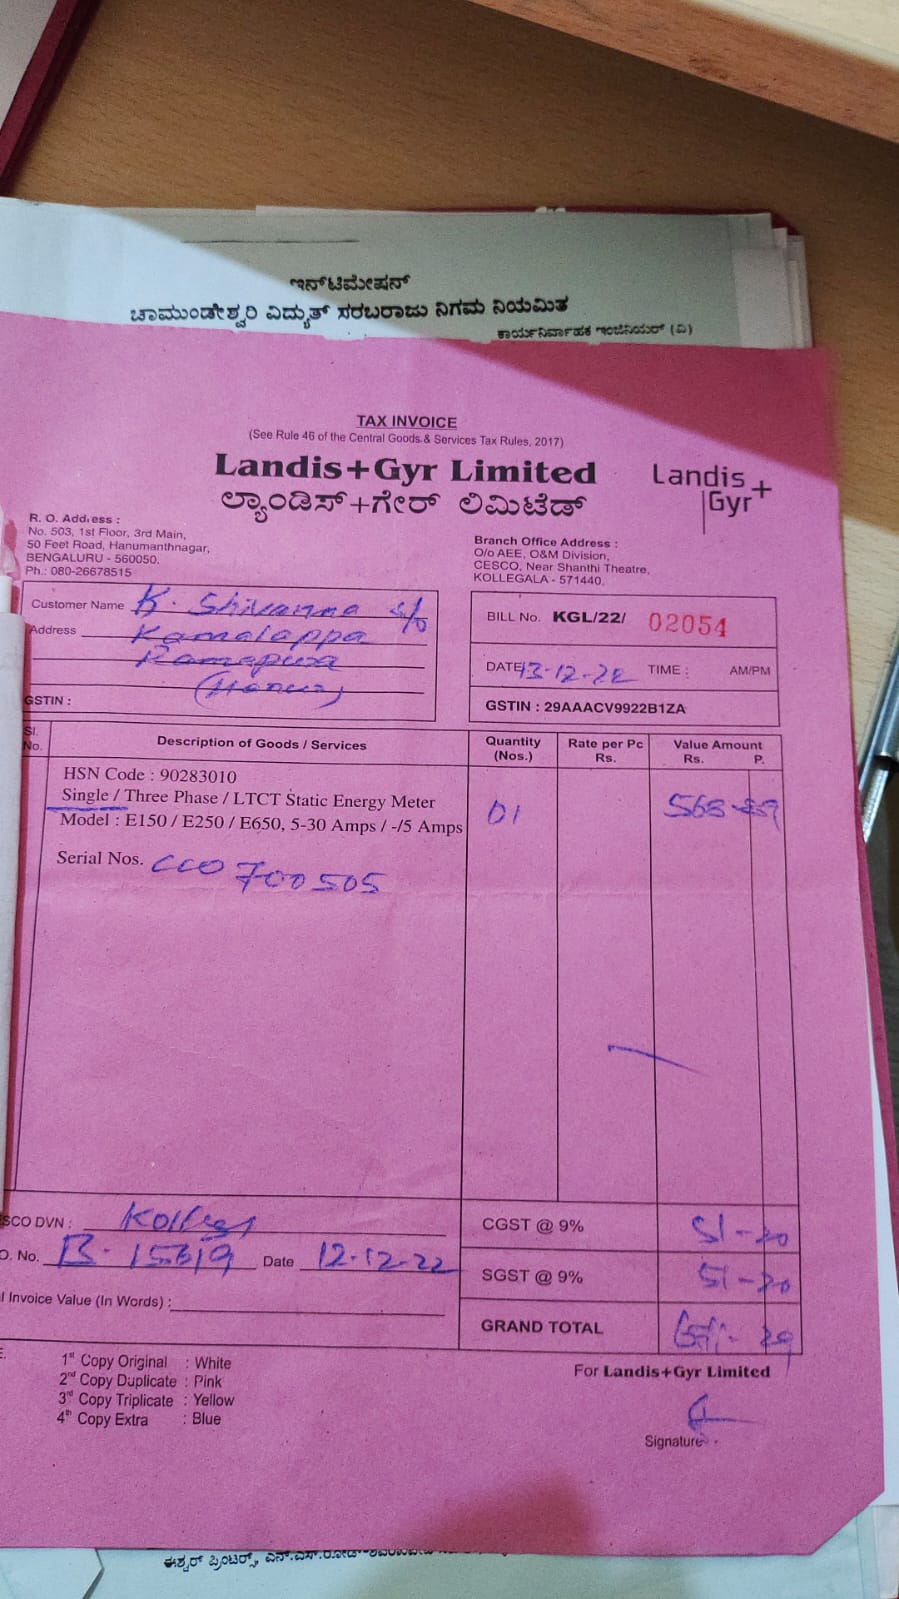 ಇನ್‌ಟಿಮೇಷನ್
ಚಾಮುಂಡೇಶ್ವರಿ ವಿದ್ಯುತ್ ಸರಬರಾಜು ನಿಗಮ ನಿಯಮಿತ
ಕಾರ್ಯನಿರ್ವಾಹಕ ಇಂಜಿನಿಯರ್ (ವಿ)
TAX INVOICE
(See Rule 46 of the Central Goods & Services Tax Rules, 2017)
Landis+Gyr Limited
Landis+
Gyr
ಲ್ಯಾಂಡಿಸ್+ಗೇರ್ ಲಿಮಿಟೆಡ್
R. O. Address :
No. 503, 1st Floor, 3rd Main,
50 Feet Road, Hanumanthnagar,
BENGALURU - 560050.
Ph.: 080-26678515
Branch Office Address :
O/o AEE, O&M Division,
CESCO, Near Shanthi Theatre,
KOLLEGALA - 571440.
Customer Name K. Shivanna S/o
Address Kamalappa
Ramapura
(Hanur)
GSTIN :
BILL No. KGL/22/ 02054
DATE 13-12-22 TIME : AM/PM
GSTIN : 29AAACV9922B1ZA
Sl. No. Description of Goods / Services Quantity (Nos.) Rate per Pc Rs. Value Amount Rs. P.
HSN Code : 90283010
Single / Three Phase / LTCT Static Energy Meter 01
Model : E150 / E250 / E650, 5-30 Amps / -/5 Amps
Serial Nos. CCO 700505
SCO DVN : Kollegal
O. No. B-15619 Date 12-12-22
Invoice Value (In Words) :
CGST @ 9% 51-20
SGST @ 9% 51-20
GRAND TOTAL
1st Copy Original : White
2nd Copy Duplicate : Pink
3rd Copy Triplicate : Yellow
4th Copy Extra : Blue
For Landis+Gyr Limited
Signature
ಈಶ್ವರ್ ಪ್ರಿಂಟರ್ಸ್, ಎನ್.ಎಸ್.ರೋಡ್